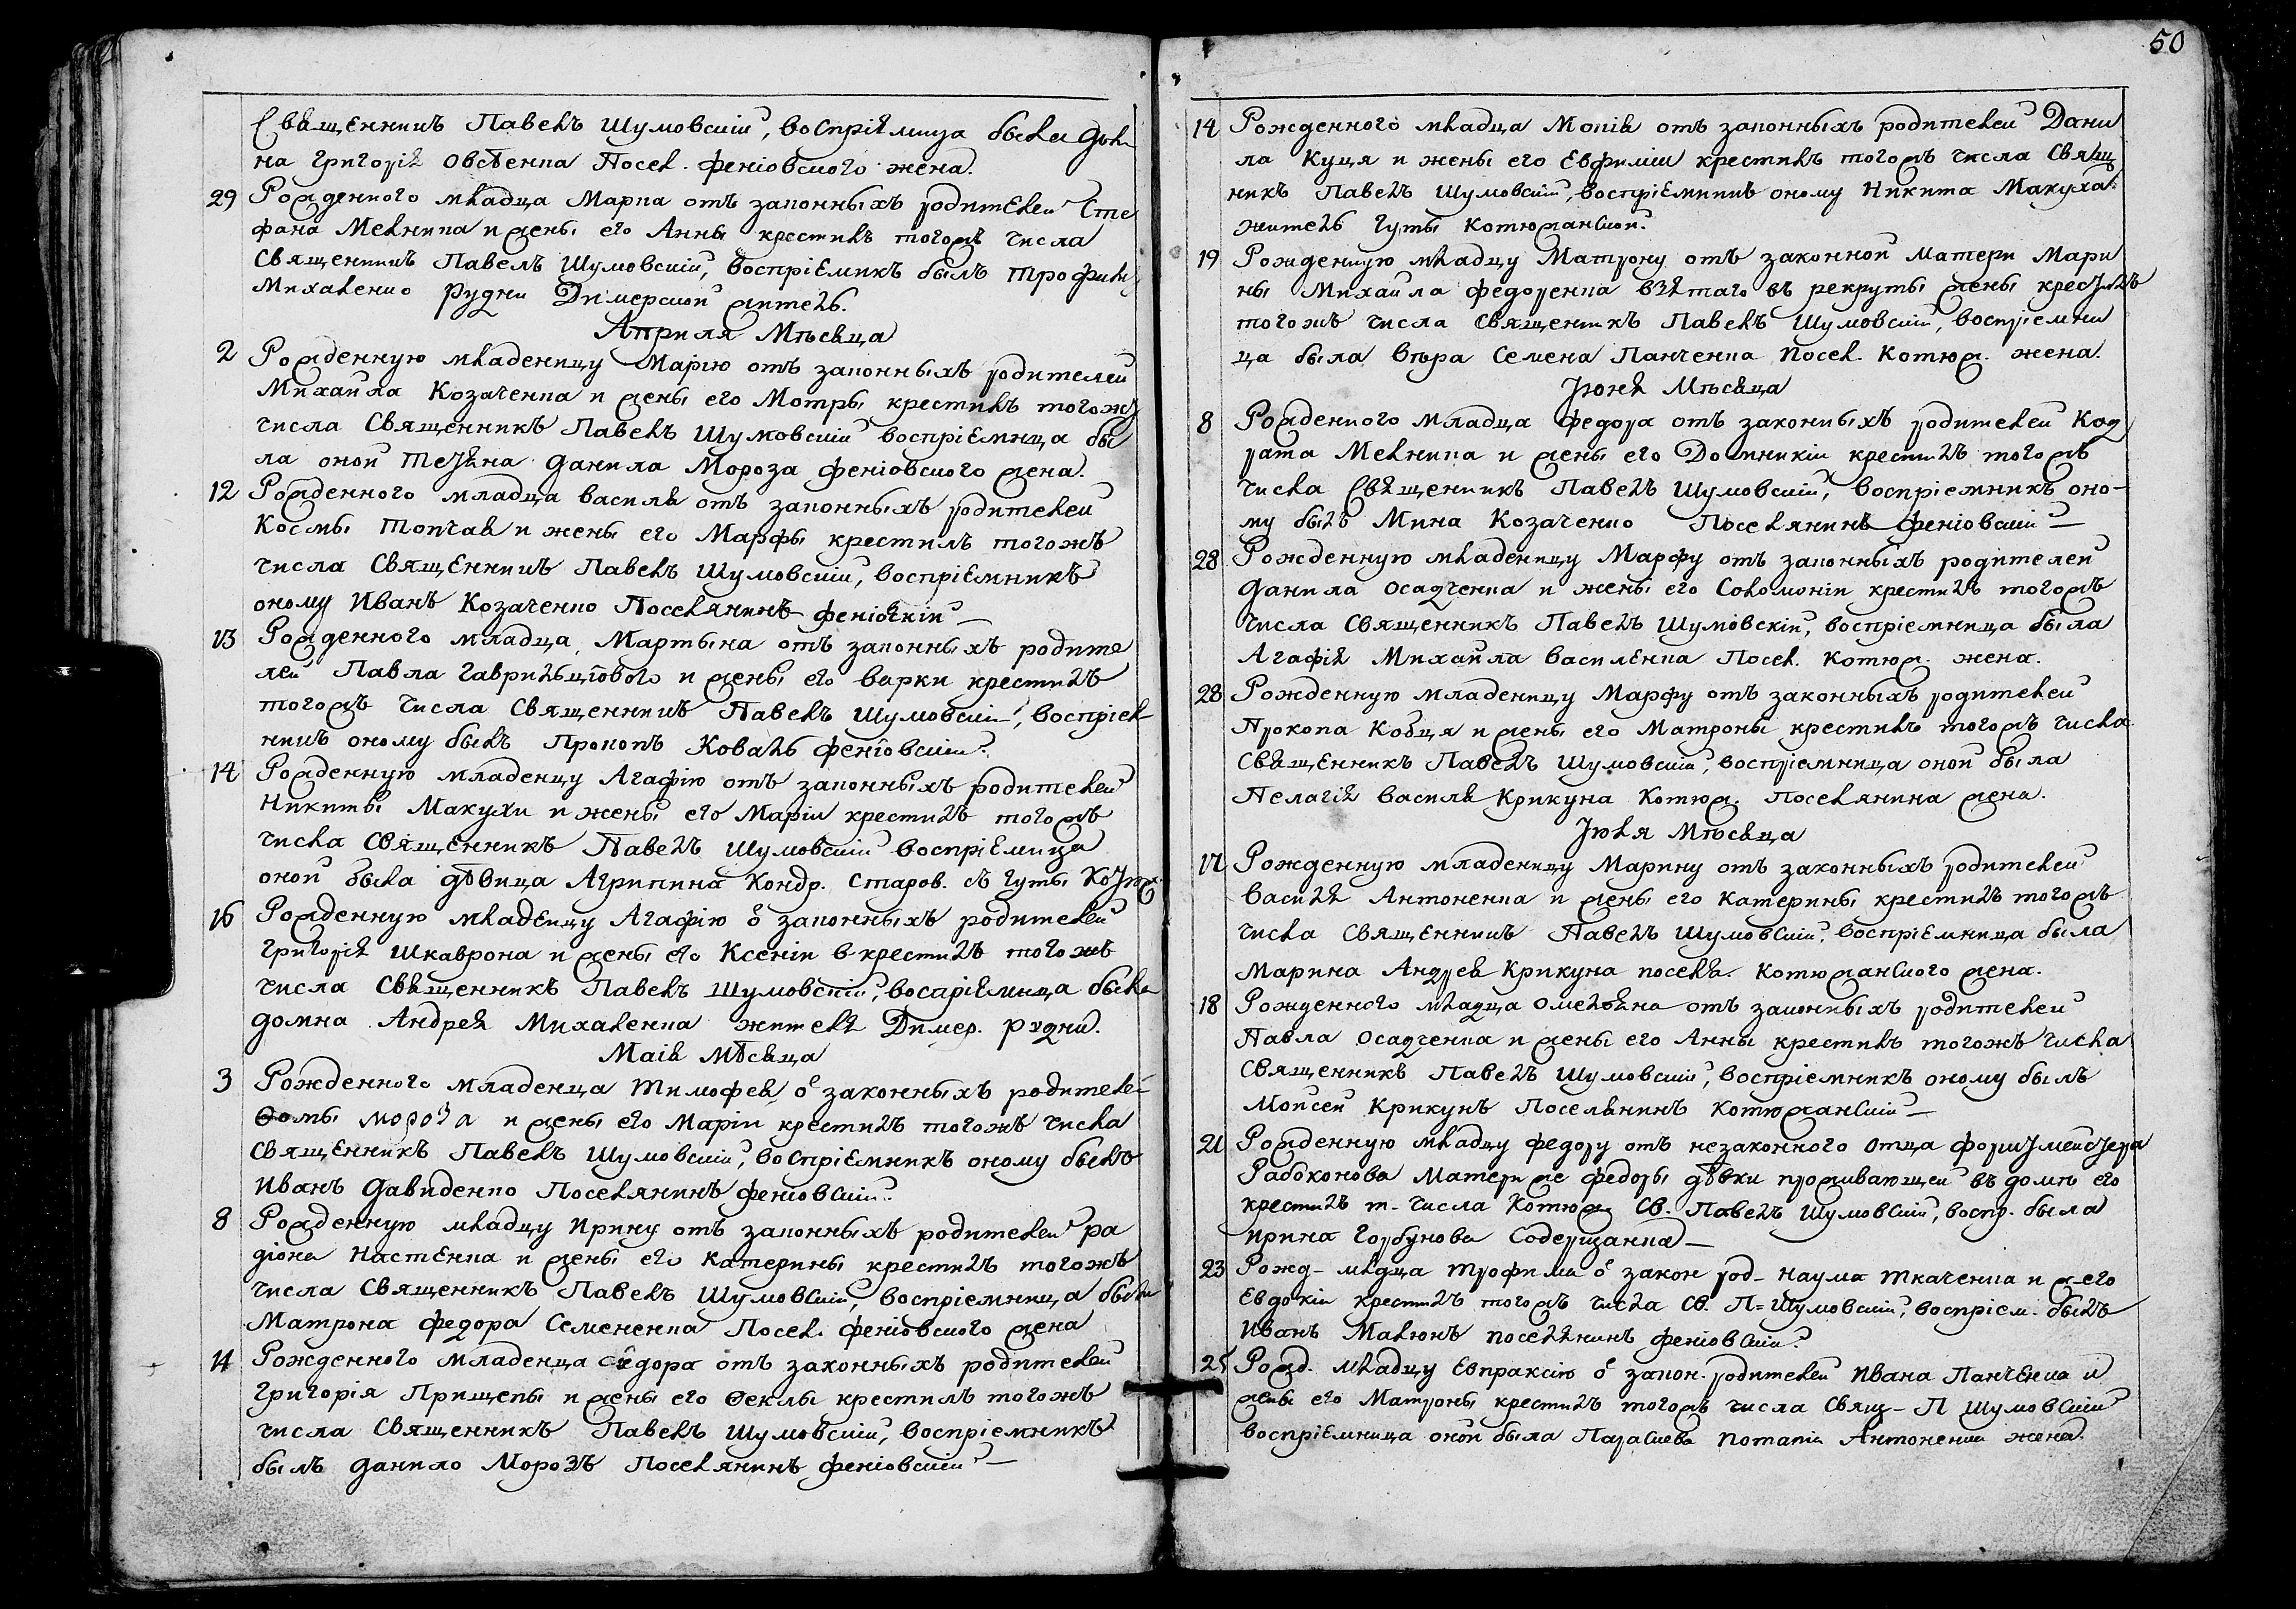 50
Священникъ Павелъ Шумовскій, воспріямица была
на Григорія Овсѣенка Посел. феніовского жена.
29 Рожденного младца Марка отъ законныхъ родителей Сте
фана Мелника и жены его Анны крестилъ тогожъ числа
Священникъ Павелъ Шумовскій, воспріемникъ былъ Трофимъ
Михаленко Рудни Димерской житель.
Априля Мѣсяца
2 Рожденную младеницу Марію отъ законныхъ родителей
Михайла Козаченка и жены его Мотры крестилъ тогожъ
числа Священникъ Павелъ Шумовскій воспріемница бы
ла оной Тетяна Данила Мороза феніовского жена.
12 Рожденного младца василя отъ законныхъ родителей
Космы Топчая и жены его Марфы крестилъ тогожъ
числа Священникъ Павелъ Шумовскій, воспріемникъ
оному Иванъ Козаченко Поселянинъ
13 Рожденного младца Мартына отъ законныхъ родите
лей Павла и жены его Варки крестилъ
тогожъ числа Священникъ Павелъ Шумовскій, воспріем
никъ оному былъ Прокопъ Коваль феніовскій.
14 Рожденную младенцу Агафію отъ законныхъ родителей
Никиты Макухи и жены его Маріи крестилъ тогожъ
числа Священникъ Павелъ Шумовскій воспріемица
оной была дѣвица Агрипина Кондр. Старов. съ Гуты Котюж.
16 Рожденную младеицу Агафію о законныхъ родителей
Григорія Шкаврона и жены его Ксеніи в крестилъ тогожъ
числа Священникъ Павелъ Шумовскій, воспріемница была
домна Андрея Михаленка жителя Димер. Рудни.
Маія мѣсяца
3 Рожденного младенца Тимофея о законныхъ родителей
Ѳомы мороза и жены его Маріи крестилъ тогожъ числа
Священникъ Павелъ Шумовскій, воспріемникъ оному былъ
Иванъ Давиденко Поселянинъ феніовскій.
8 Рожденную младцу Ирину отъ законныхъ родителей ра
діона Настенка и жены его Катерины крестилъ тогожъ
числа Священникъ Павелъ Шумовскій, воспріемница была
Матрона Федора Семененка Посел. феніовского жена
14 Рожденного младенца отъ законныхъ родителей
Григорія Прищепы и жены его Ѳеклы крестилъ тогожъ
числа Священникъ Павелъ Шумовскій, воспріемникъ
былъ Данило Морозъ Поселянинъ феніовскій
14 Рожденного младца Мокія отъ законныхъ родителей Дани
ла Куця и жены его Евфиміи крестилъ тогожъ числа Свящ
никъ Павелъ Шумовскій, воспріемникъ оному Никита Макуха
житель Гуты Котюжанской.
19 Рожденную младцу Матрону отъ законной матери Мари
ны Михайла Федоренка взятаго въ рекруты жены крестилъ
тогожъ числа Священникъ Павелъ Шумовскій, воспріемни
ца была вѣра Семена Панченка Посел. Котюж. жена.
Іюня Мѣсяца
8 Рожденного младца Федора отъ законныхъ родителей Код
рата Мелника и жены его Домникіи крестилъ тогожъ
числа Священникъ Павелъ Шумовскій, воспріемникъ оно-
му былъ Мина Козаченко Поселянинъ феніовскій
28 Рожденную младеницу Марфу отъ законныхъ родителей
Данила Осадченка и жены его Соломоніи крестилъ тогожъ
числа Священникъ Павелъ Шумовскій, воспріемница была
Агафія Михайла василенка Посел. Котюж. жена.
28 Рожденную младеницу Марфу отъ законныхъ родителей
Прокопа Кобця и жены его Матроны крестилъ тогожъ числа
Священникъ Павелъ Шумовскій, воспріемница оной была
Пелагія Василя Крикуна Котюж. Поселянина жена.
Іюля Мѣсяца
17 Рожденную младеницу Марину отъ законныхъ родителей
Василя Антоненка и жены его Катерины крестилъ тогожъ
числа Священникъ Павелъ Шумовскій. воспріемница была
Марина Андрея Крикуна поселя. Котюжанского жена.
18 Рожденного младца Омеляна отъ законныхъ родителей
Павла Осадченка и жены его Анны крестилъ тогожъ числа
Священникъ Павелъ Шумовскій, воспріемникъ оному былъ
Моисей Крикунъ Поселянинъ Котюжанскій
21 Рожденную младцу Федору отъ незаконного отца форштмейстера
Рабоконова матери же Федоры дѣвки проживающей въ домѣ его
крестилъ т. числа Котюж. Св. Павелъ Шумовскій, воспр. была
Ирина Горбунова
23 Рожд. младца Трофима о закон род. Наума Ткаченка и ж его
Евдокіи крестилъ тогожъ числа Св. П= Шумовскій, воспріем. былъ
Иванъ Малюнъ поселянинъ феніовскій.
25 Рожд. младцу Евпраксію о закон. родителей Ивана Панченка и
жены его Матроны крестилъ тогожъ числа Свящ. П Шумовскій
воспріемница оной была Параскева Потапія Антоненка жена.